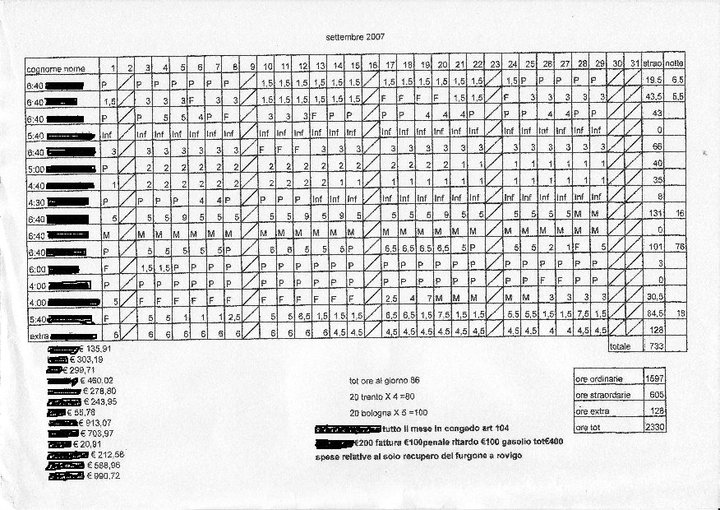 settembre 2007
cognome nome 1 2 3 4 5 6 7 8 9 10 11 12 13 14 15 16 17 18 19 20 21 22 23 24 25 26 27 28 29 30 31 strao notte
6:40 P P P P P P P 1,5 1,5 1,5 1,5 1,5 1,5 1,5 1,5 1,5 1,5 1,5 1,5 1,5 P P P P P 19,5 6,5
6:40 1,5 3 3 3 F 3 3 1,5 1,5 1,5 1,5 1,5 1,5 F F F F 1,5 1,5 F 3 3 3 3 3 43,5 5,5
6:40 P P 5 5 4 P F 3 3 3 F P P P P 4 4 4 P P P P P P P 43
5:40 Inf Inf Inf Inf Inf Inf Inf Inf Inf Inf Inf Inf Inf Inf Inf Inf Inf Inf Inf Inf Inf Inf Inf Inf Inf 0
6:40 3 3 3 3 3 3 3 F F F 3 3 3 3 3 3 3 3 3 3 3 3 3 3 3 66
5:00 P 2 2 2 2 2 2 2 2 2 2 2 2 2 2 2 2 1 1 1 1 1 1 1 1 40
4:40 1 2 2 2 2 2 2 2 2 2 2 1 1 1 1 1 1 1 1 1 1 1 1 1 1 35
4:30 P P P P 4 4 P P P P Inf Inf Inf Inf Inf Inf Inf Inf Inf Inf Inf Inf Inf Inf Inf 8
6:40 5 5 5 9 5 5 5 5 5 9 5 9 5 5 5 5 9 5 5 5 5 5 5 M M 131 16
6:40 M M M M M M M M M M M M M M M M M M M M M M M M M 0
6:40 P 5 5 5 5 5 P 6 6 5 5 P 6,5 6,5 6,5 6,5 5 P 5 5 2 1 F 5 101 76
6:00 F 1,5 1,5 P P P P P P P P P P P P P P P P P P P P P P 3
4:00 P P P P P P P P P P P P P P P P P P P P P F F P P 0
4:00 5 F F F F F F F F F F F F 2,5 4 7 M M M M M 3 3 3 3 30,5
5:40 F 5 5 1 1 1 2,5 5 5 6,5 1,5 1,5 1,5 6,5 6,5 1,5 1,5 5,5 5,5 1,5 1,5 7,5 1,5 84,5 18
extra 6 6 6 6 6 6 6 6 6 6 4,5 4,5 4,5 4,5 4,5 4,5 4,5 4,5 4,5 4,5 4,5 4 4 4,5 4,5 128
totale 733
€ 135,91
€ 303,19
€ 299,71
€ 460,02
€ 278,80
€ 243,95
€ 55,76
€ 913,07
€ 703,97
€ 20,91
€ 212,58
€ 588,96
€ 990,72
tot ore al giorno 86
20 trento X 4 =80
20 bologna X 5 =100
tutto il mese in congedo art 104
€200 fattura €100penale ritardo €100 gasolio tot€400
spese relative al solo recupero del furgone a rovigo
ore ordinarie 1597
ore straordarie 605
ore extra 128
ore tot 2330